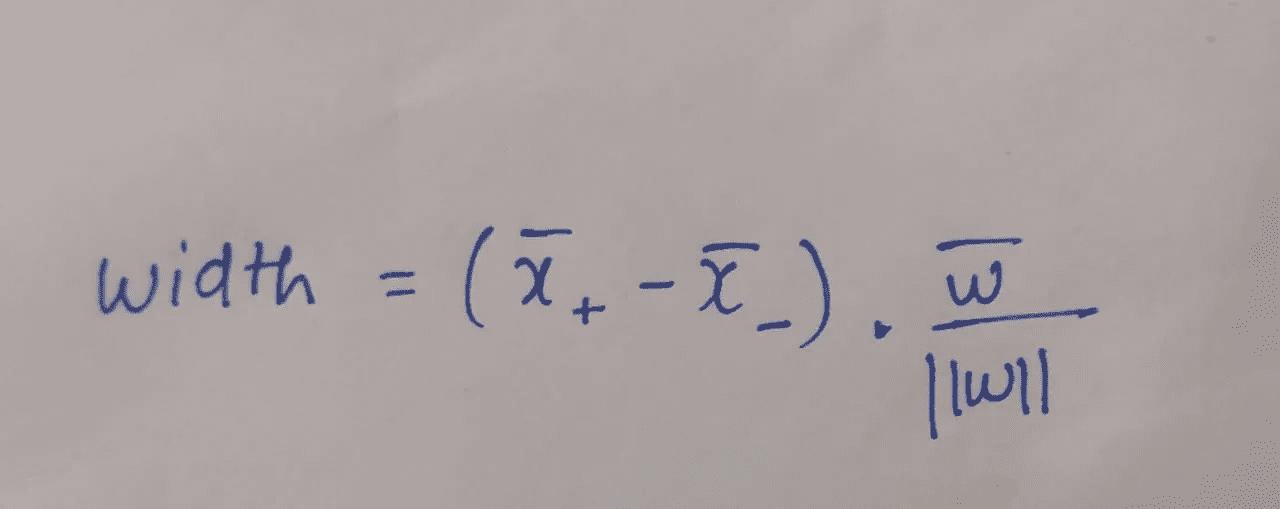 width = (x̄₊ - x̄₋) · w̄ / ||w||